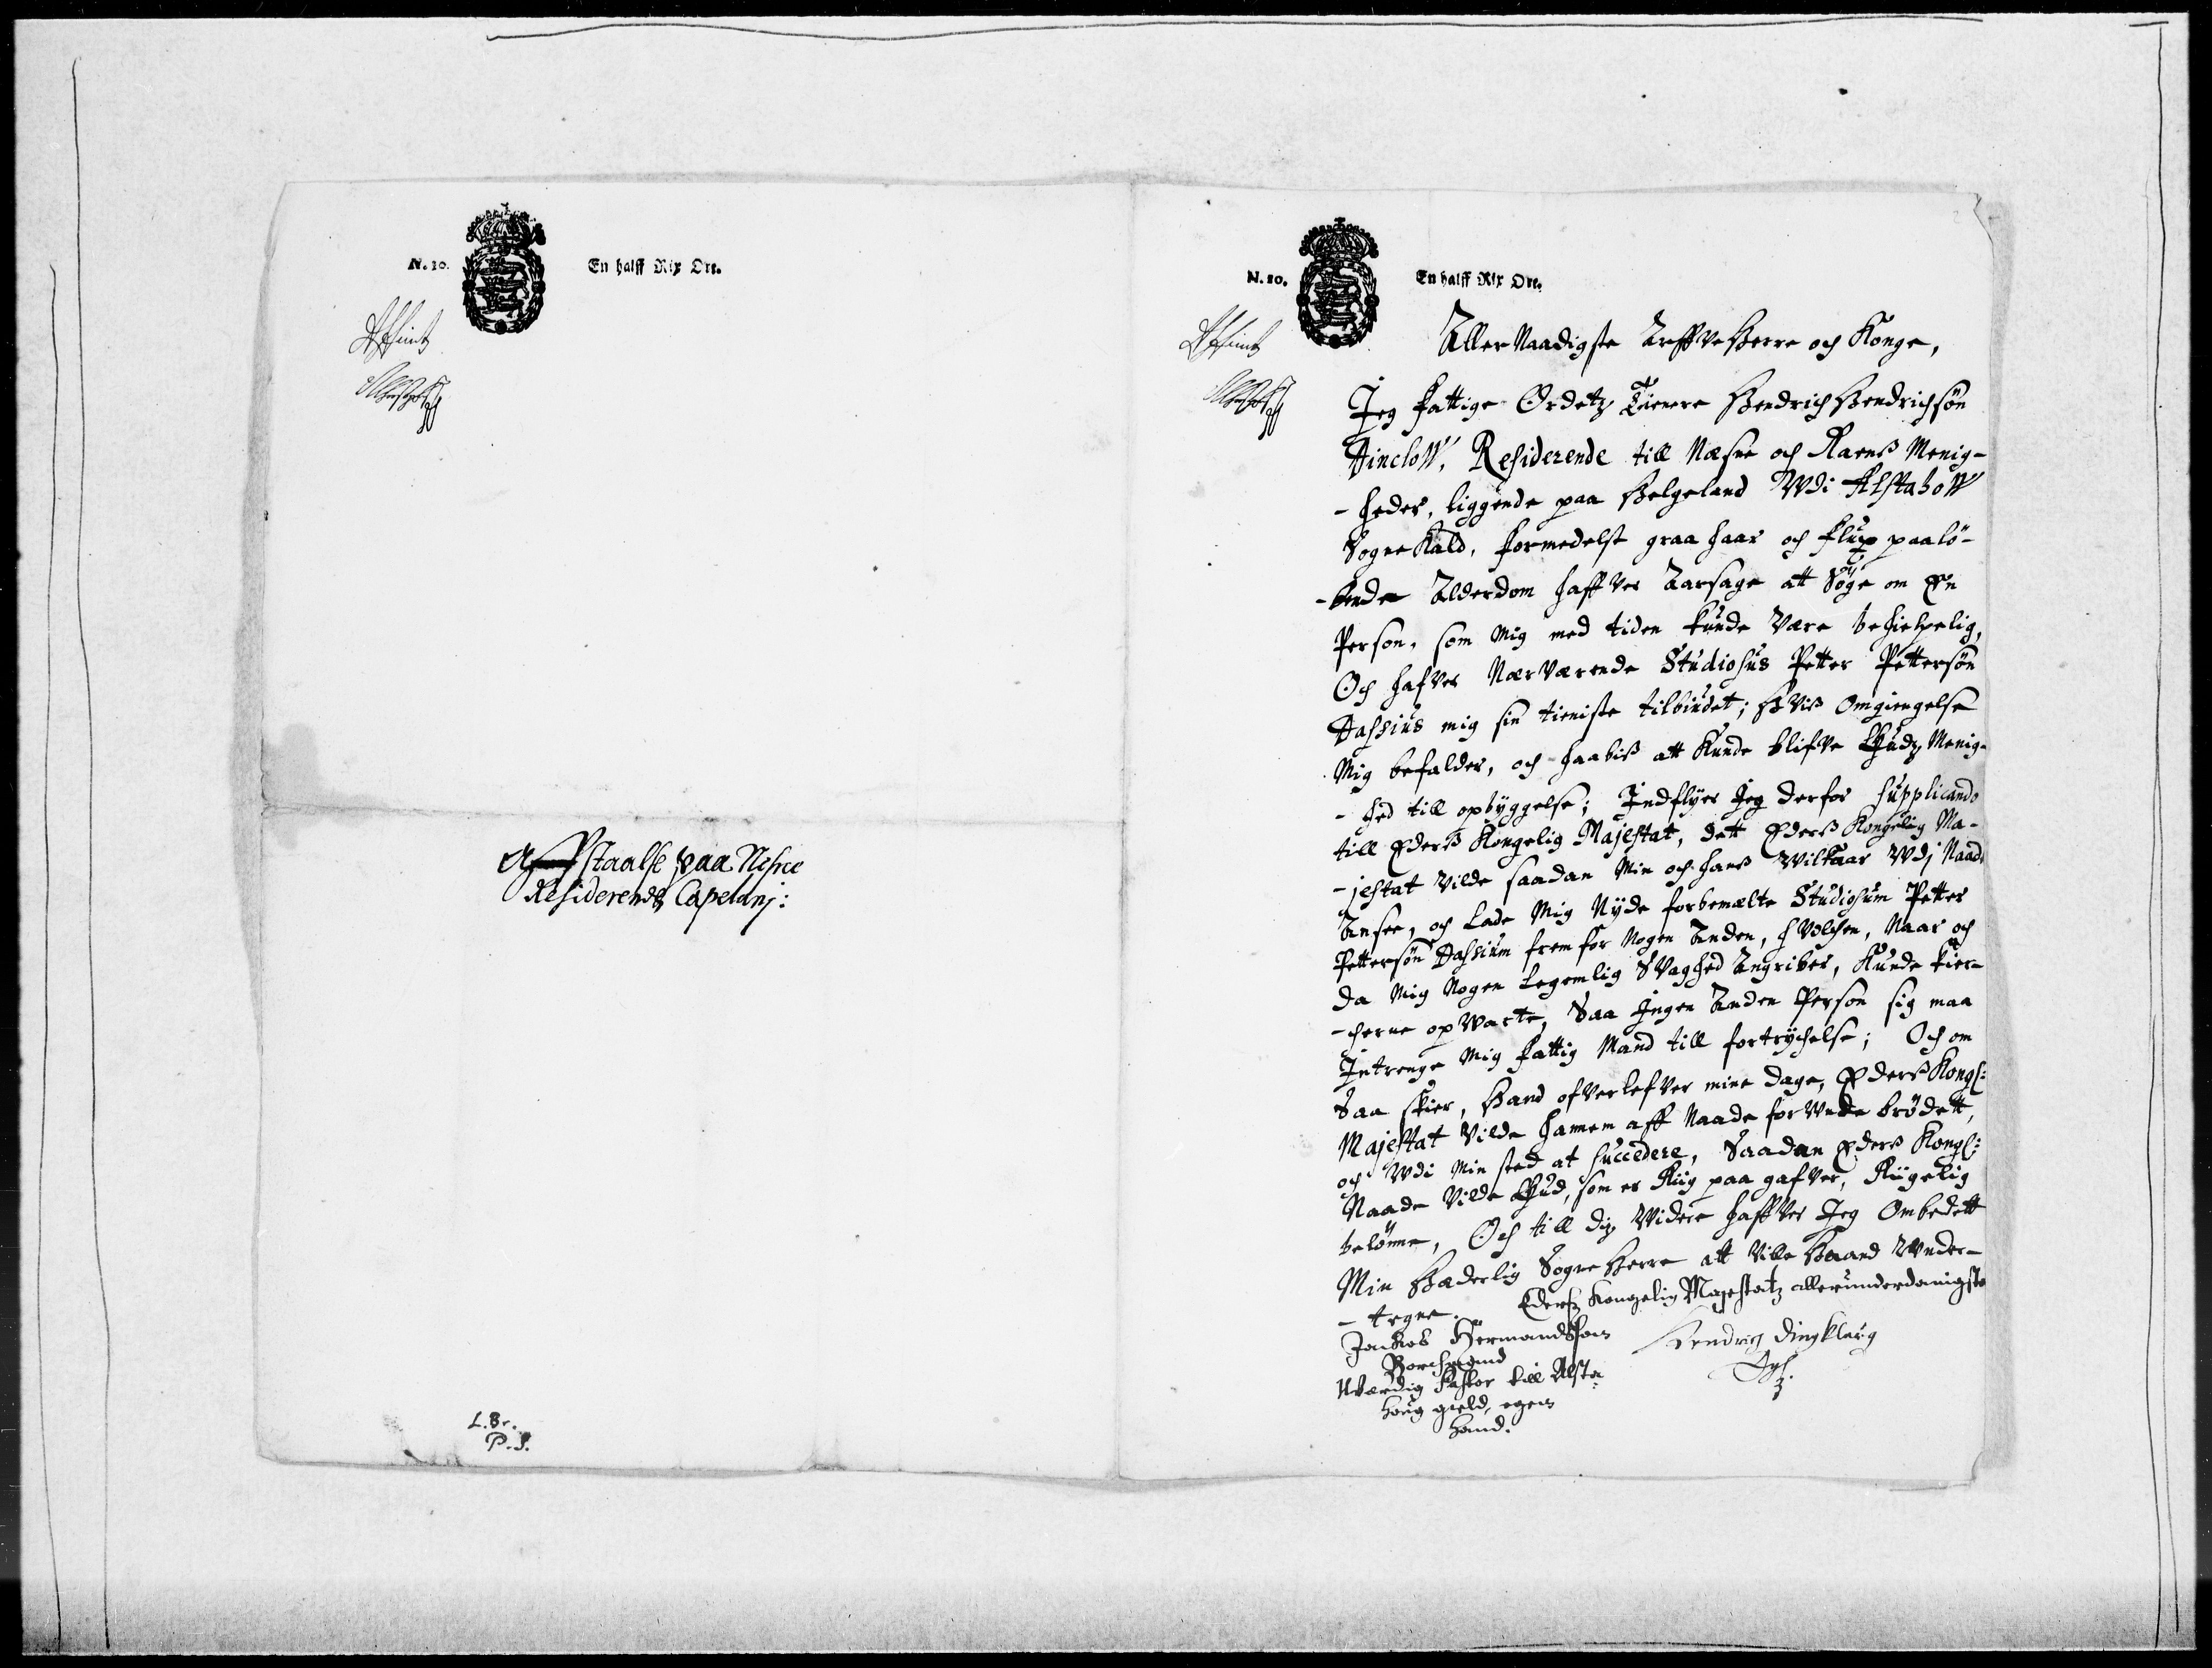 N. 10.
En halff Rix Ort.
staalse paa Nesne
Residerende Capelanj:
L. Br.
P. S.
N. 10.
En halff Rix Ort.
Aller Naadigste Arffve Herre och Konge,
Jeg fattige Ordetz Tienere Hendrich Hendrichsøn
Dincloff, Residerende till Næsne och Ranens Menig-
-heder, liggende paa Helgeland Wdi Alstahoff
Sogne Kald, formedelst graa haar och flux paalø-
-bende Alderdom haffver Aarsage att Søge om En
Person, som Mig med tiden kunde være behielpelig,
Och hafver Nærværende Studiosus Petter Pettersøn
Dassius mig sin tieniste tilbuidet; Hviss Omgiengelse
Mig befalder, och haabis att Kunde blifve Gudz Menig-
-hed till opbyggelse; Indflyer Jeg derfor supplicando
till Eders Kongelig Majestat, dett Eders Kongelig Ma-
-jestat vilde saadan Min och hans Wilkaar Wdj Naade
Ansee, och Lade Mig Nyde forbemælte Studiosum Petter
Pettersøn Dassium frem for Nogen Anden, hvelchen, Naar och
da Mig Nogen Legemlig Svaghed Angriber, Kunde kier-
-cherne opwarte, Saa Ingen Anden Person sig maa
Intrenge Mig fattig Mand till fortrychelse; Och om
Saa skier, Hand ofverlefver mine dage, Eders Kongl:
Majestat vilde hannem aff Naade forunde brødett,
och Wdi Min sted at succedere, Saadan Eders Kongl:
Naade vilde Gud, som er Riig paa gafver, Riigelig
belønne, Och till diz Widere haffver Jeg Ombedett
Min Hæderlig Sogne Herre att ville Haand Wnder-
-tegne.
Edersz Kongelig Majestatz allerunderdanigste
Jachob Hermandsson
Borchmand
Uværdig Pastor till Alsta-
houg gield, egen
Hand.
Hendrich Dingklaug